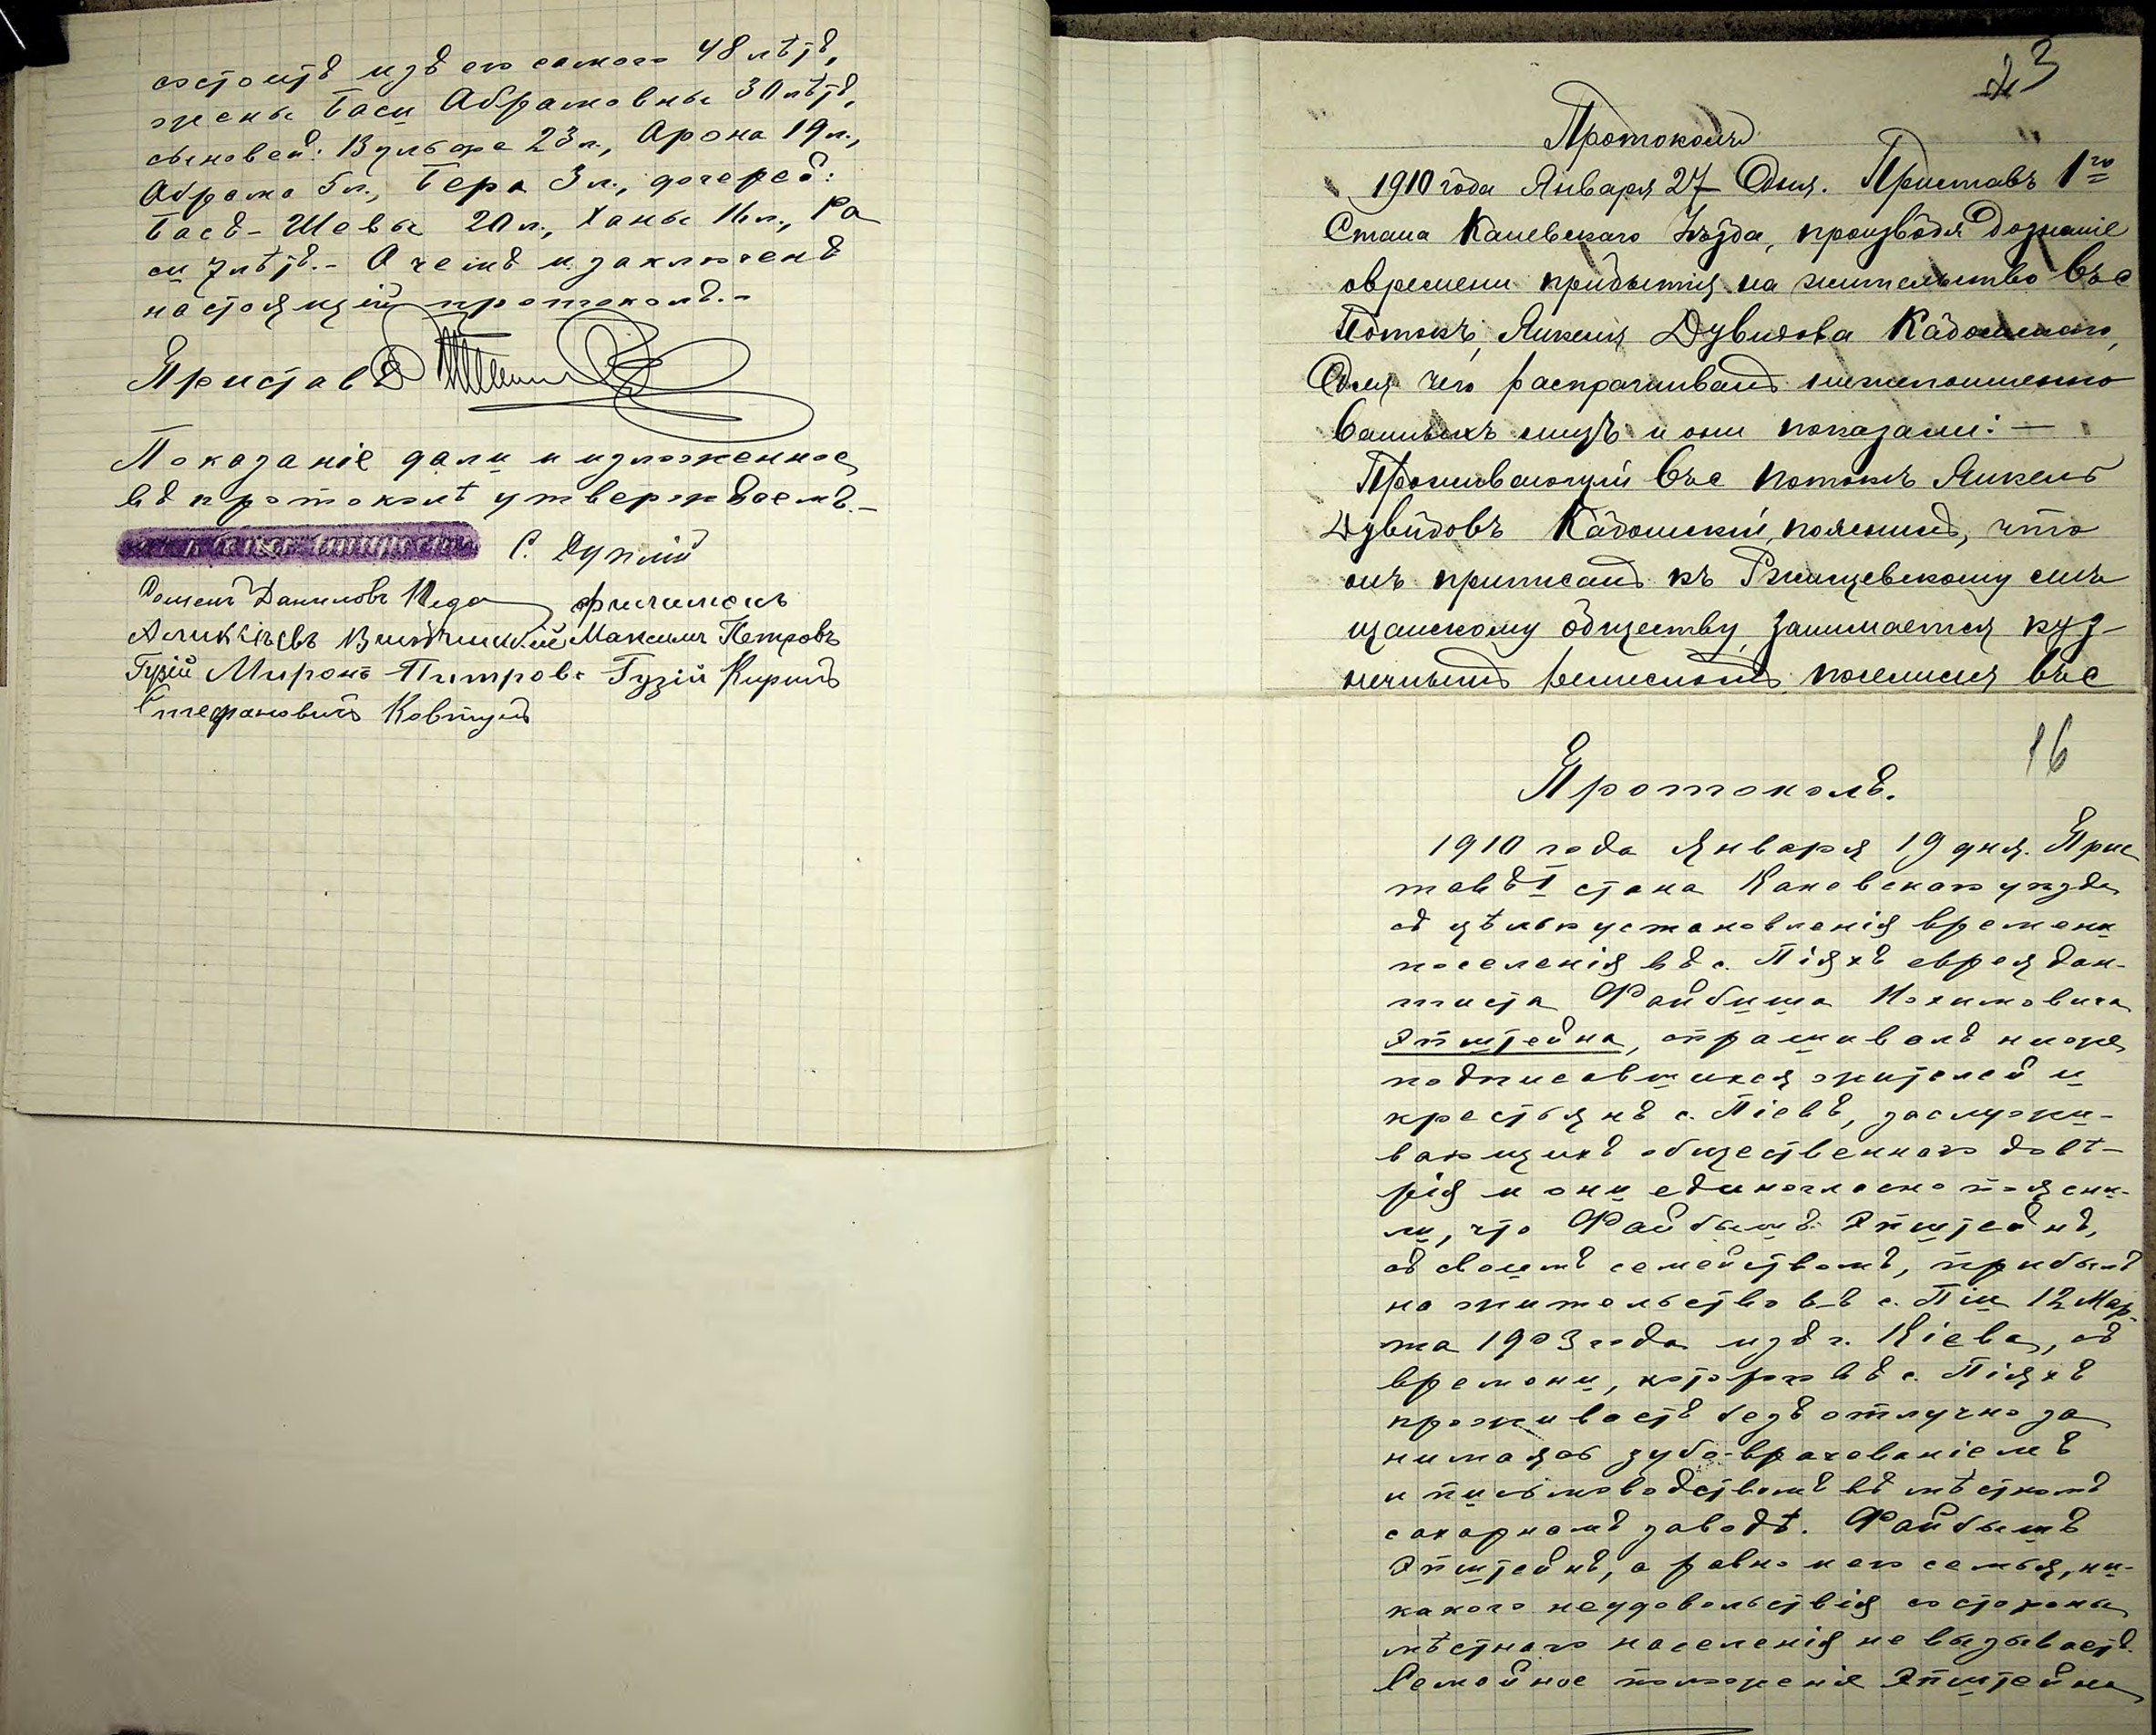 состоитъ изъ его самого 48 лѣтъ,
жены Баси Абрамовны 30 лѣтъ,
сыновей: Вульфа 23 л., Арона 19 л.,
Абрама 5 л., Бера 3 л., дочерей:
Бася-Шевы 20 л., Ханы 16 л., Ра
си 7 лѣтъ.- О чемъ и заключенъ
настоящій протоколъ.-
Приставъ
Показаніе дали и изложенное
въ протоколѣ утверждаемъ.-
С. Дуплій
Даниловъ
Максимъ Петровъ
Гузій Миронъ Питровъ Гузій Кирилъ
Стефановичъ Ковтунъ
23
Протоколъ
1910 года Января 27 Дня. Приставъ 1го
Стана Каневскаго Уѣзда, производя Дознаніе
овремени прибытія на жительство въ с
Потокъ, Янкеля Дувидова Кадошскаго,
Для чего распрашивалъ нижепоимено
ванныхъ лицъ и они показали: —
Проживающій въ с Потокъ Янкель
Дувидовъ Кадошскій, пояснилъ, что
онъ приписанъ къ Ржищевскому мѣ
щанскому обществу, занимается куз-
нечнымъ ремесломъ, поселился въ с
16
Протоколъ.
1910 года января 19 дня. Прис
тавъ I стана Каневскаго уѣзда
съ цѣлью установленія времени
поселенія въ с. Піяхъ еврея дан-
тиста Файбиша Нохимовича
Эпштейна, опрашивалъ ниже
подписавшихся жителей и
крестьянъ с. Піевъ, заслужи-
вающихъ общественнаго довѣ-
рія и они единогласно поясни-
ли, что Файбишъ Эпштейнъ,
съ своимъ семействомъ, прибылъ
на жительство въ с. Піи 12 Мар
та 1903 года изъ г. Кіева, съ
времени, котораго въ с. Піяхъ
проживаетъ безъ отлучно за
нимаясь зубо-врачеваніемъ
и письмоводствомъ въ мѣстномъ
сахарномъ заводѣ. Файбишъ
Эпштейнъ, а равно и его семья, ни-
какого неудовольствія со стороны
мѣстнаго населенія не вызываетъ.
Семейное положеніе Эпштейна